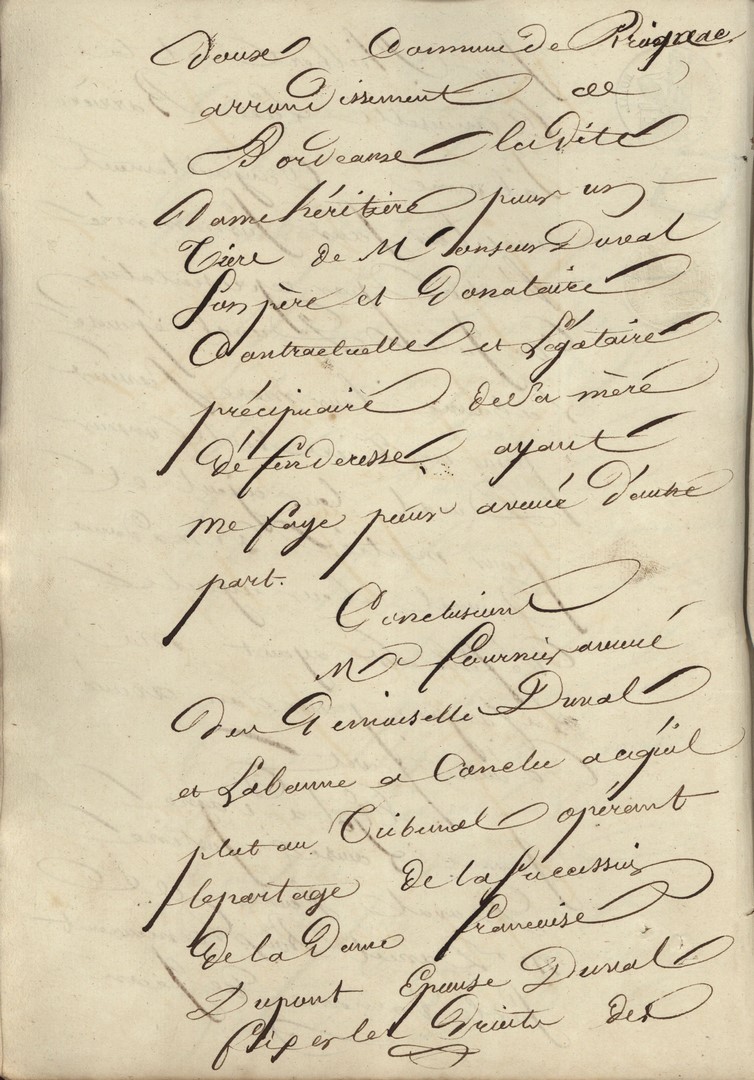 Doux Commune de Preignac
arrondissement de
Bordeaux laditte
Dame héritière pour un
Tière de Monsieur Duval
son père et Donataire
Contractuelle et Légataire
précipuaire de sa mère
défenderesse ayant
Me faye pour avoué d'autre
part.
Conclusions
Me fournier avoué
des Demoiselle Duval
et Labanne a Conclu a ce qu'il
plut au Tribunal opérant
le partage de la succession
de la Dame francoise
Dupont Epouse Duval
fixer les Droits des